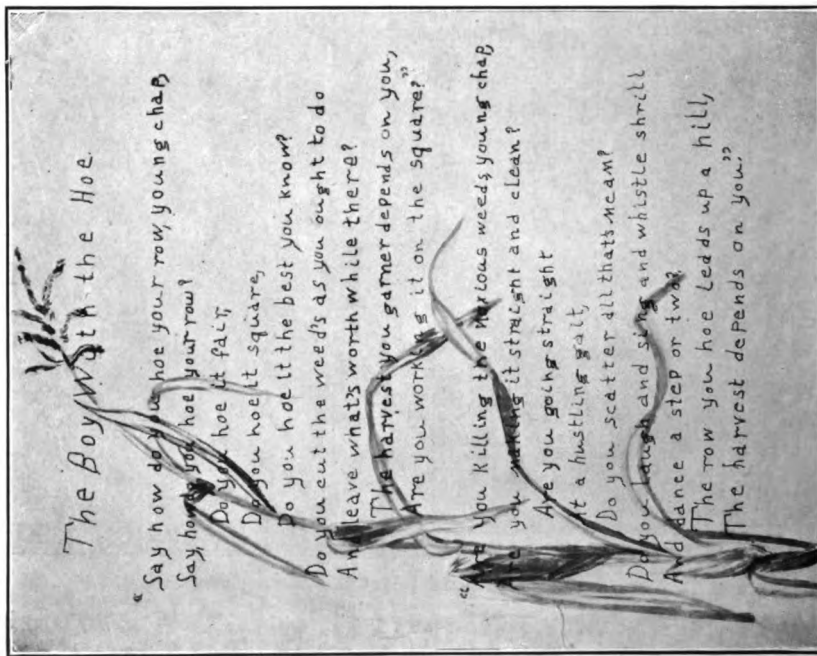 The Boy With the Hoe.
"Say how do you hoe your row, young chap,
Say, how do you hoe your row?
Do you hoe it fair,
Do you hoe it square,
Do you hoe it the best you know?
Do you cut the weed's as you ought to do
And leave what's worth while there?
The harvest you garner depends on you,
Are you working it on the square?"
"Are you Killing the noxious weeds, young chap,
Are you making it straight and clean?
Are you going straight
At a hustling gait,
Do you scatter all that's mean?
Do you laugh and sing and whistle shrill
And dance a step or two?
The row you hoe leads up a hill,
The harvest depends on you."